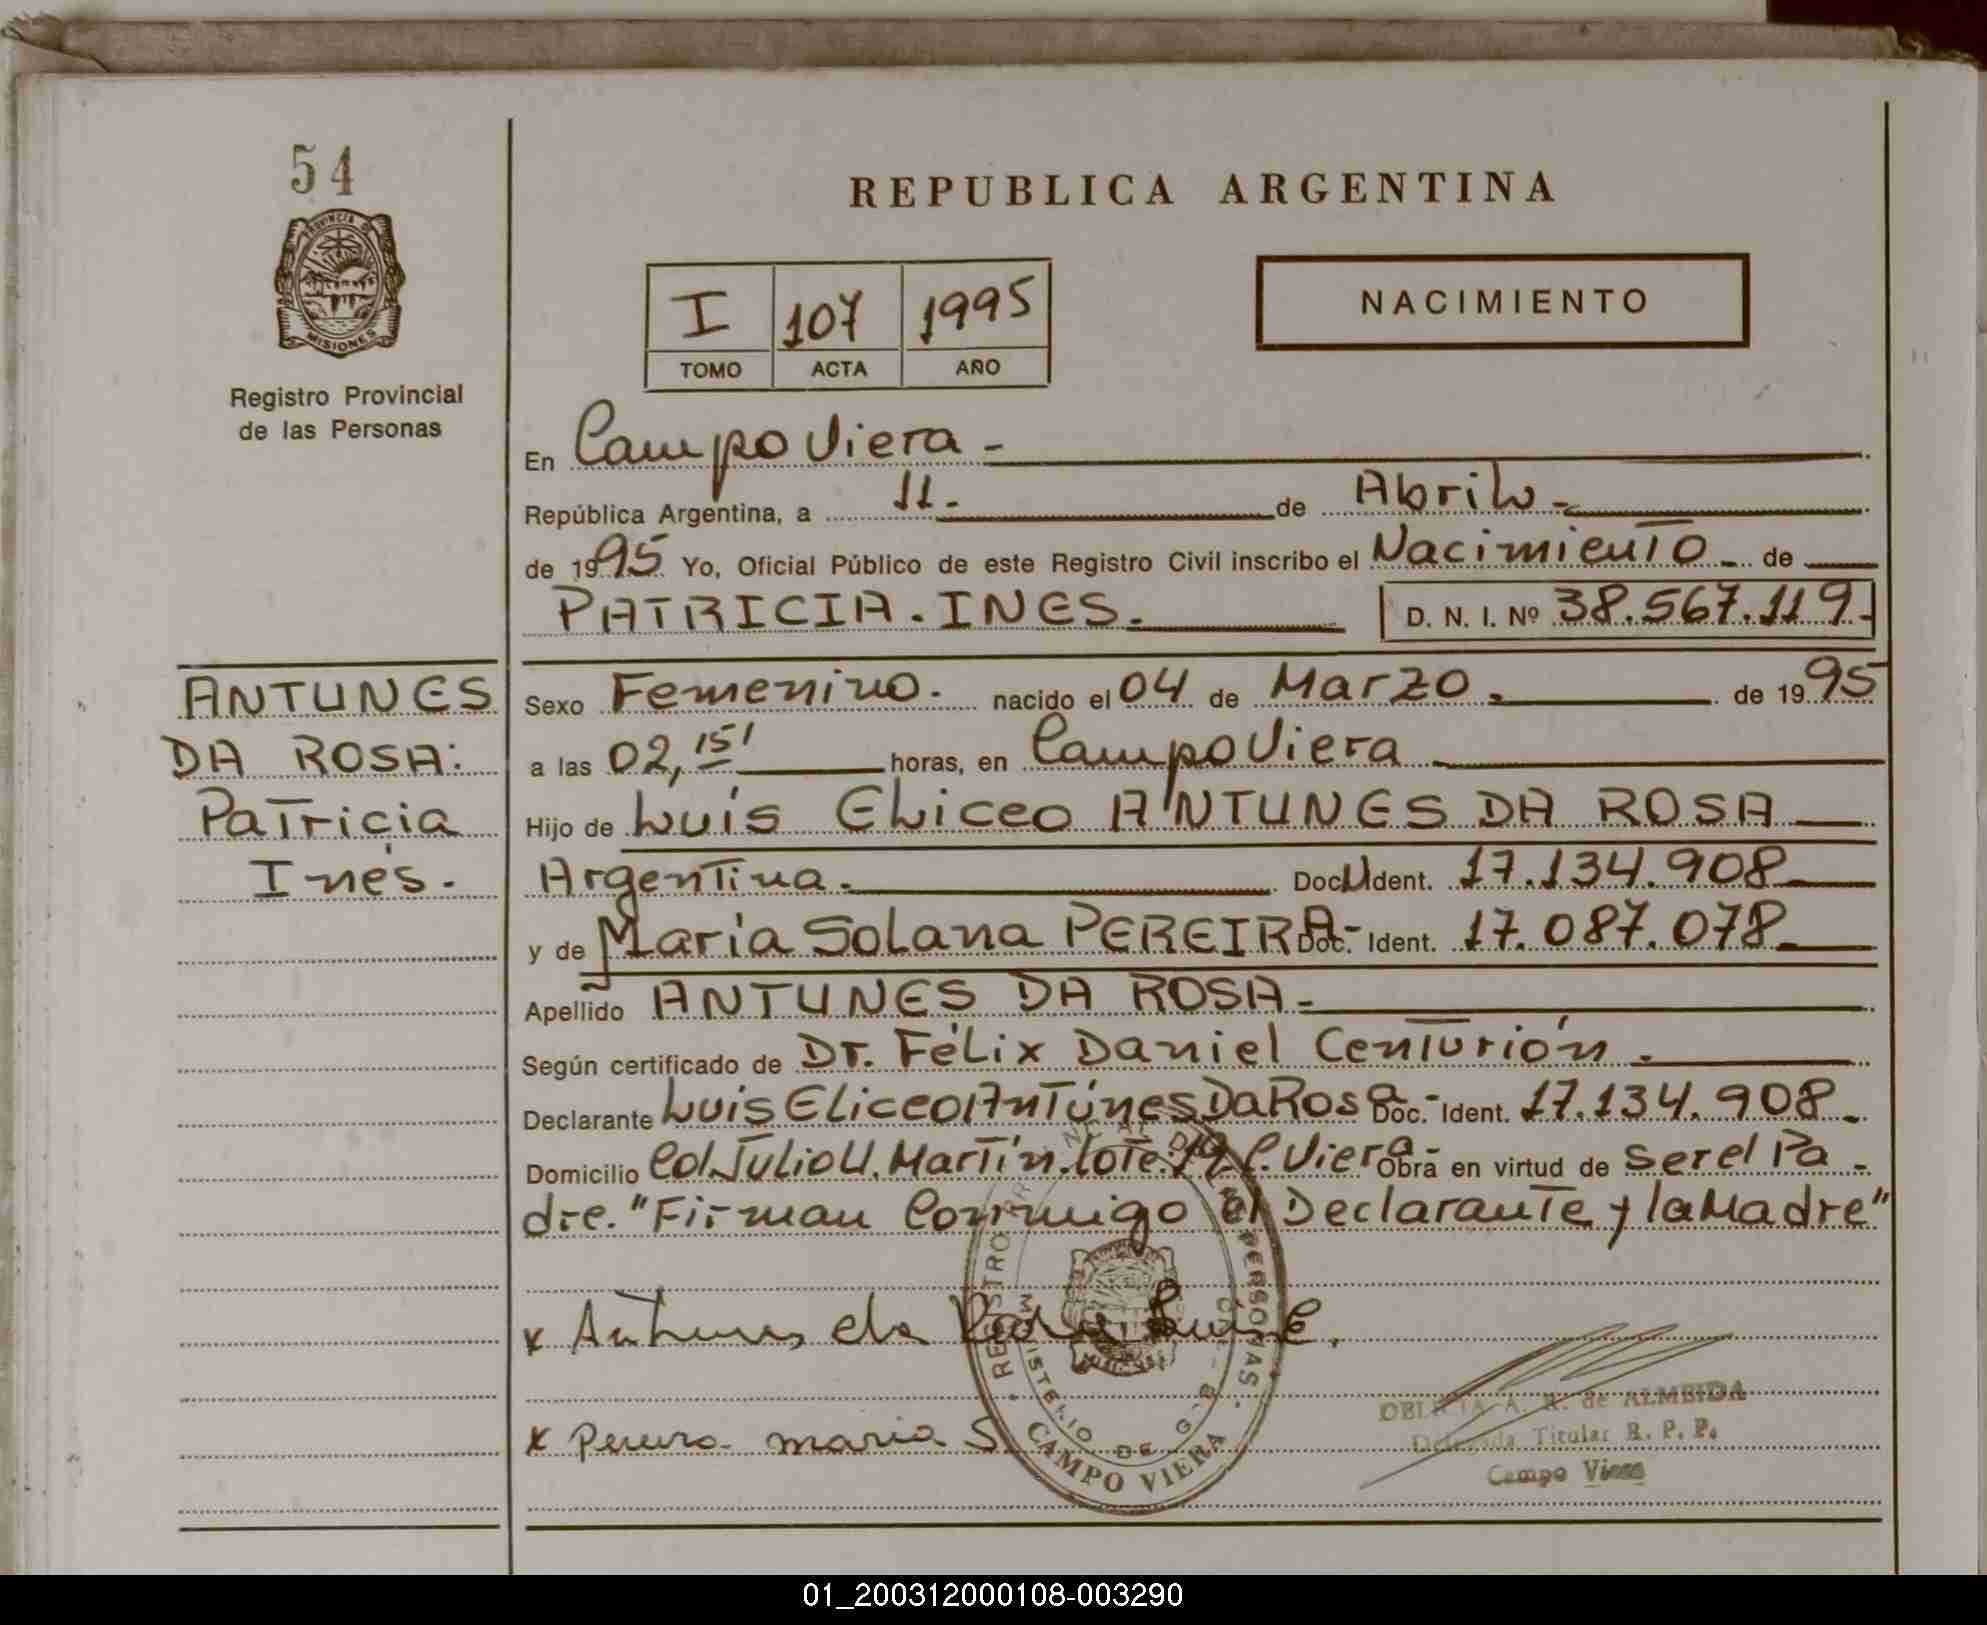 54
PROVINCIA DE
MISIONES
Registro Provincial
de las Personas
REPUBLICA ARGENTINA
I 107 1995
TOMO ACTA AÑO
NACIMIENTO
En Campo Viera -
República Argentina, a 11.- de Abril -
de 1995 Yo, Oficial Público de este Registro Civil inscribo el Nacimiento - de
PATRICIA. INES.- D. N. I. Nº 38.567.119.-
ANTUNES
DA ROSA:
Patricia
Inés.-
Sexo Femenino. nacido el 04 de Marzo. de 1995
a las 02,15' horas, en Campo Viera
Hijo de Luis Eliceo ANTUNES DA ROSA
Argentina.- Doc. Ident. 17.134.908
y de María Solana PEREIRA- Doc. Ident. 17.087.078
Apellido ANTUNES DA ROSA-
Según certificado de Dr. Félix Daniel Centurión.
Declarante Luis Eliceo Antúnes Da Rosa Doc. Ident. 17.134.908.-
Domicilio Col. Julio U. Martín. lote: C. Viera Obra en virtud de ser el Pa-
dre. "Firman Conmigo el Declarante y la Madre"
x Antunes da Rosa Luis E.
x Pereira maria S.
REGISTRO PROVINCIAL DE LAS PERSONAS
MINISTERIO DE G.
CAMPO VIERA
OBLICIA A. R. de ALMEIDA
Delegada Titular R. P. P.
Campo Viera
01_200312000108-003290